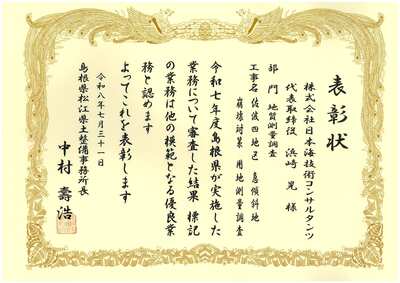 表彰状
株式会社日本海技術コンサルタンツ
代表取締役 浜崎 晃 様
部門 地質測量調査
工事名 佐波四地区 急傾斜地
崩壊対策 用地測量調査
令和七年度島根県が実施した
業務について審査した結果 標記
の業務は他の模範となる優良業
務と認めます
よってこれを表彰します
令和八年七月三十一日
島根県松江県土整備事務所長
中村 壽浩